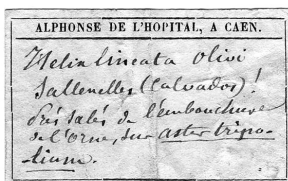 ALPHONSE DE L'HOPITAL, A CAEN.
Helix lineata Olivi
Sallenelles (Calvados)!
Prés salés de l'embouchure
de l'Orne, sur aster tripo-
lium.